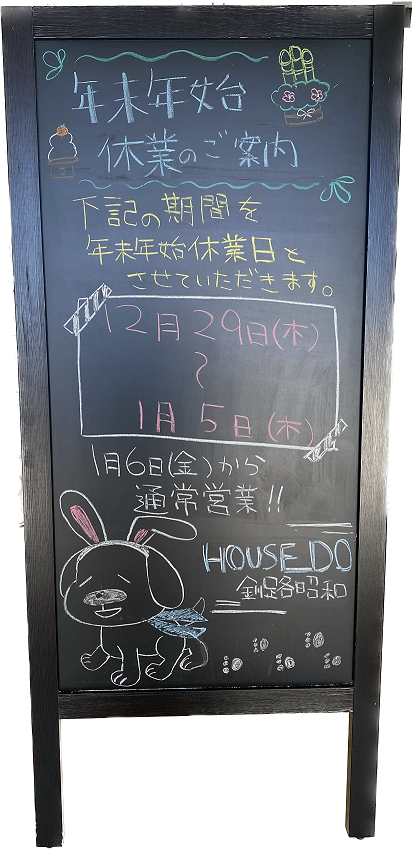 年末年始
休業のご案内
下記の期間を
年末年始休業日と
させていただきます。
12月29日(木)
〜
1月5日(木)
1月6日(金)から
通常営業!!
HOUSE DO
釧路昭和